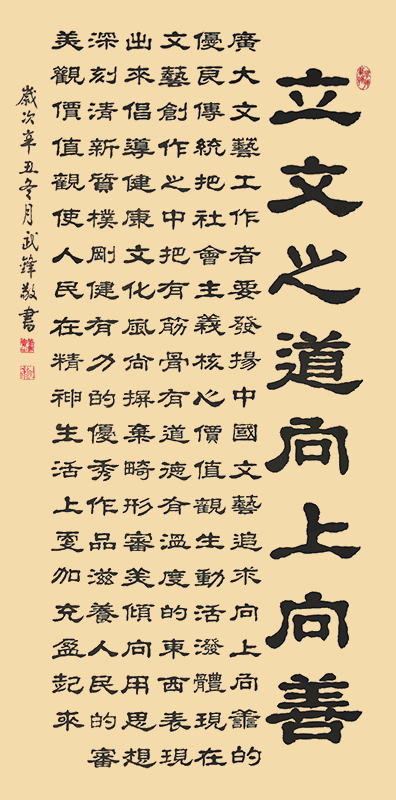 立文之道向上向善
廣大文藝工作者要發揚中國文藝追求向上向善的
優良傳統把社會主義核心價值觀生動活潑體現在
文藝創作之中把有筋骨有道德有溫度的東西表現
出來倡導健康文化風尚摒棄畸形審美傾向用思想
深刻清新質樸剛健有力的優秀作品滋養人民的審
美觀價值觀使人民在精神生活上更加充盈起來
歲次辛丑冬月武鋒敬書